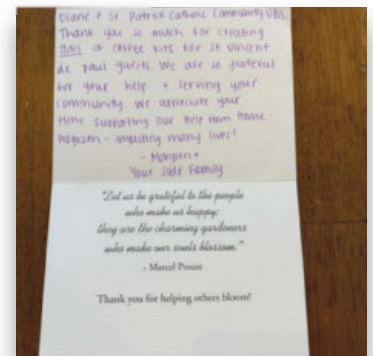 Diane & St. Patrick Catholic Community VBS
Thank you so much for creating
of coffee kits for St Vincent
de Paul guests. We are so grateful
for your help + serving your
community. We appreciate your
time supporting our help from home
program - impacting many lives!
- Morgan +
Your SVdP Family
"Let us be grateful to the people
who make us happy;
they are the charming gardeners
who make our souls blossom."
- Marcel Proust
Thank you for helping others bloom!